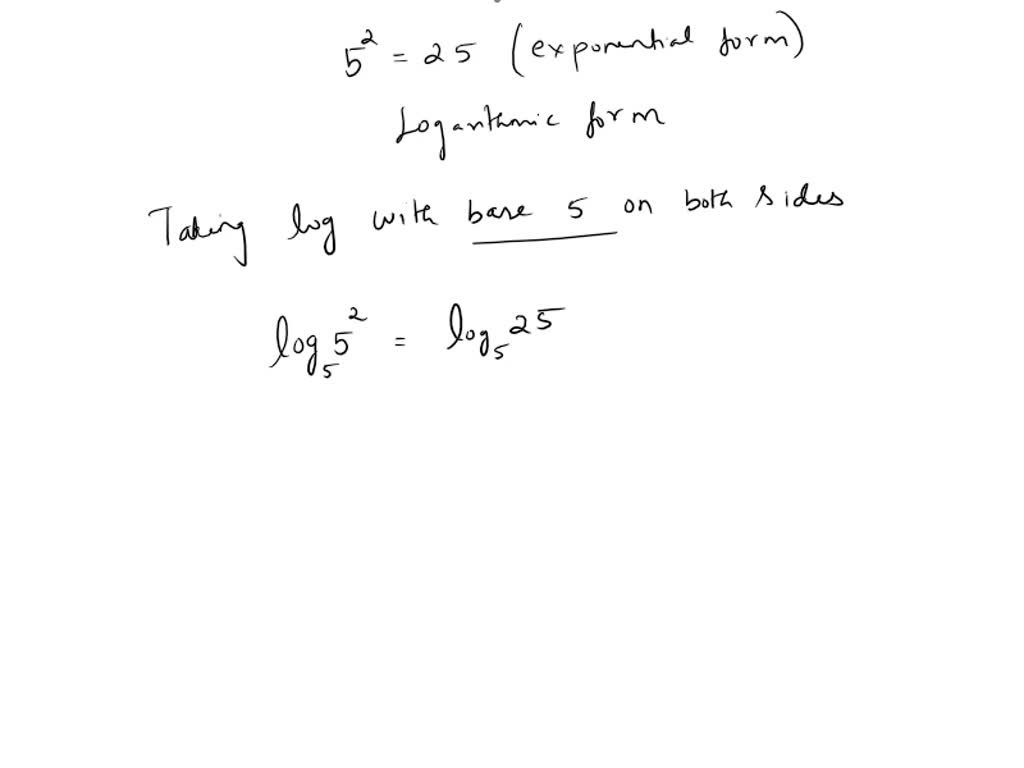 5² = 25 (exponential form)
Logarithmic form
Taking log with base 5 on both sides
log₅5² = log₅25